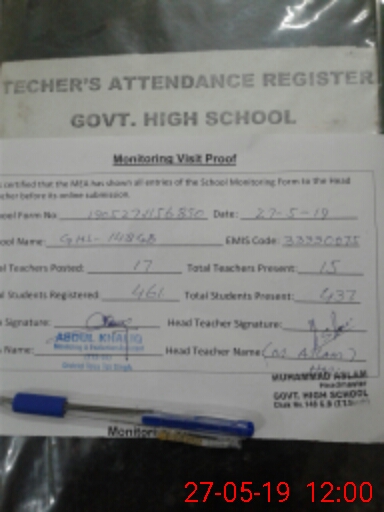 TECHER'S ATTENDANCE REGISTER
GOVT. HIGH SCHOOL
Monitoring Visit Proof
certified that the MEA has shown all entries of the School Monitoring Form to the Head
cher before its online submission.
ool Form No: Date: 27-5-19
ool Name: GHS- 148GB EMIS Code:
al Teachers Posted: 17 Total Teachers Present: 15
al Students Registered: 461 Total Students Present: 437
Signature: Head Teacher Signature:
Name: ABDUL KHALIQ Head Teacher Name: (M. ASLAM)
MUHAMMAD ASLAM
Headmaster
GOVT. HIGH SCHOOL
Monitori
27-05-19 12:00